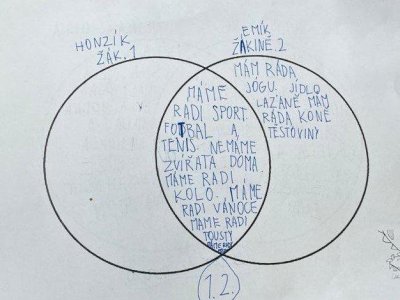 HONZÍK
ŽÁK.1
EMÍK
ŽÁKINĚ.2
MÁME
RADI SPORT.
FOTBAL A
TENIS. NEMÁME
ZVÍŘATA DOMA.
MÁME RADI
KOLO. MÁME
RADI VÁNOCE
MÁME RADI
TOUSTY
MÁM RÁDA
JOGU. JÍDLO
LAZÁNĚ MÁM
RÁDA KONĚ
TĚSTOVINY
1.2.